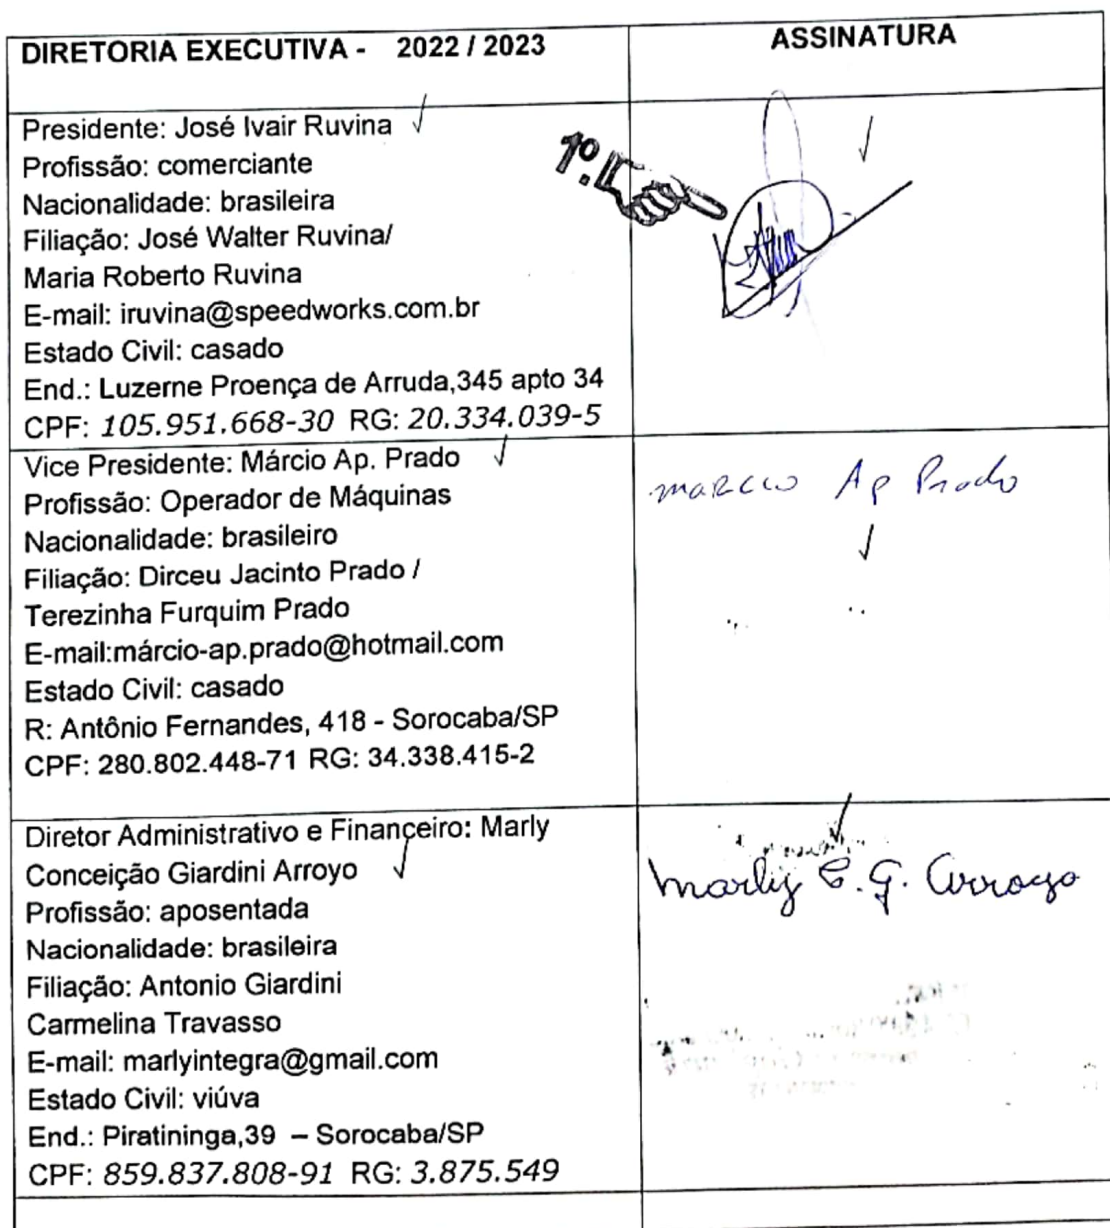 DIRETORIA EXECUTIVA - 2022 / 2023
ASSINATURA
Presidente: José Ivair Ruvina
Profissão: comerciante
Nacionalidade: brasileira
Filiação: José Walter Ruvina/
Maria Roberto Ruvina
E-mail: iruvina@speedworks.com.br
Estado Civil: casado
End.: Luzerne Proença de Arruda,345 apto 34
CPF: 105.951.668-30 RG: 20.334.039-5
1º.
Vice Presidente: Márcio Ap. Prado
Profissão: Operador de Máquinas
Nacionalidade: brasileiro
Filiação: Dirceu Jacinto Prado /
Terezinha Furquim Prado
E-mail:márcio-ap.prado@hotmail.com
Estado Civil: casado
R: Antônio Fernandes, 418 - Sorocaba/SP
CPF: 280.802.448-71 RG: 34.338.415-2
marcio Ap Prado
Diretor Administrativo e Financeiro: Marly
Conceição Giardini Arroyo
Profissão: aposentada
Nacionalidade: brasileira
Filiação: Antonio Giardini
Carmelina Travasso
E-mail: marlyintegra@gmail.com
Estado Civil: viúva
End.: Piratininga,39 – Sorocaba/SP
CPF: 859.837.808-91 RG: 3.875.549
Marly C. G. Arroyo